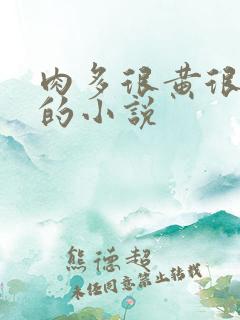 肉多很黄很
的小说
熊德超
未经同意禁止转载